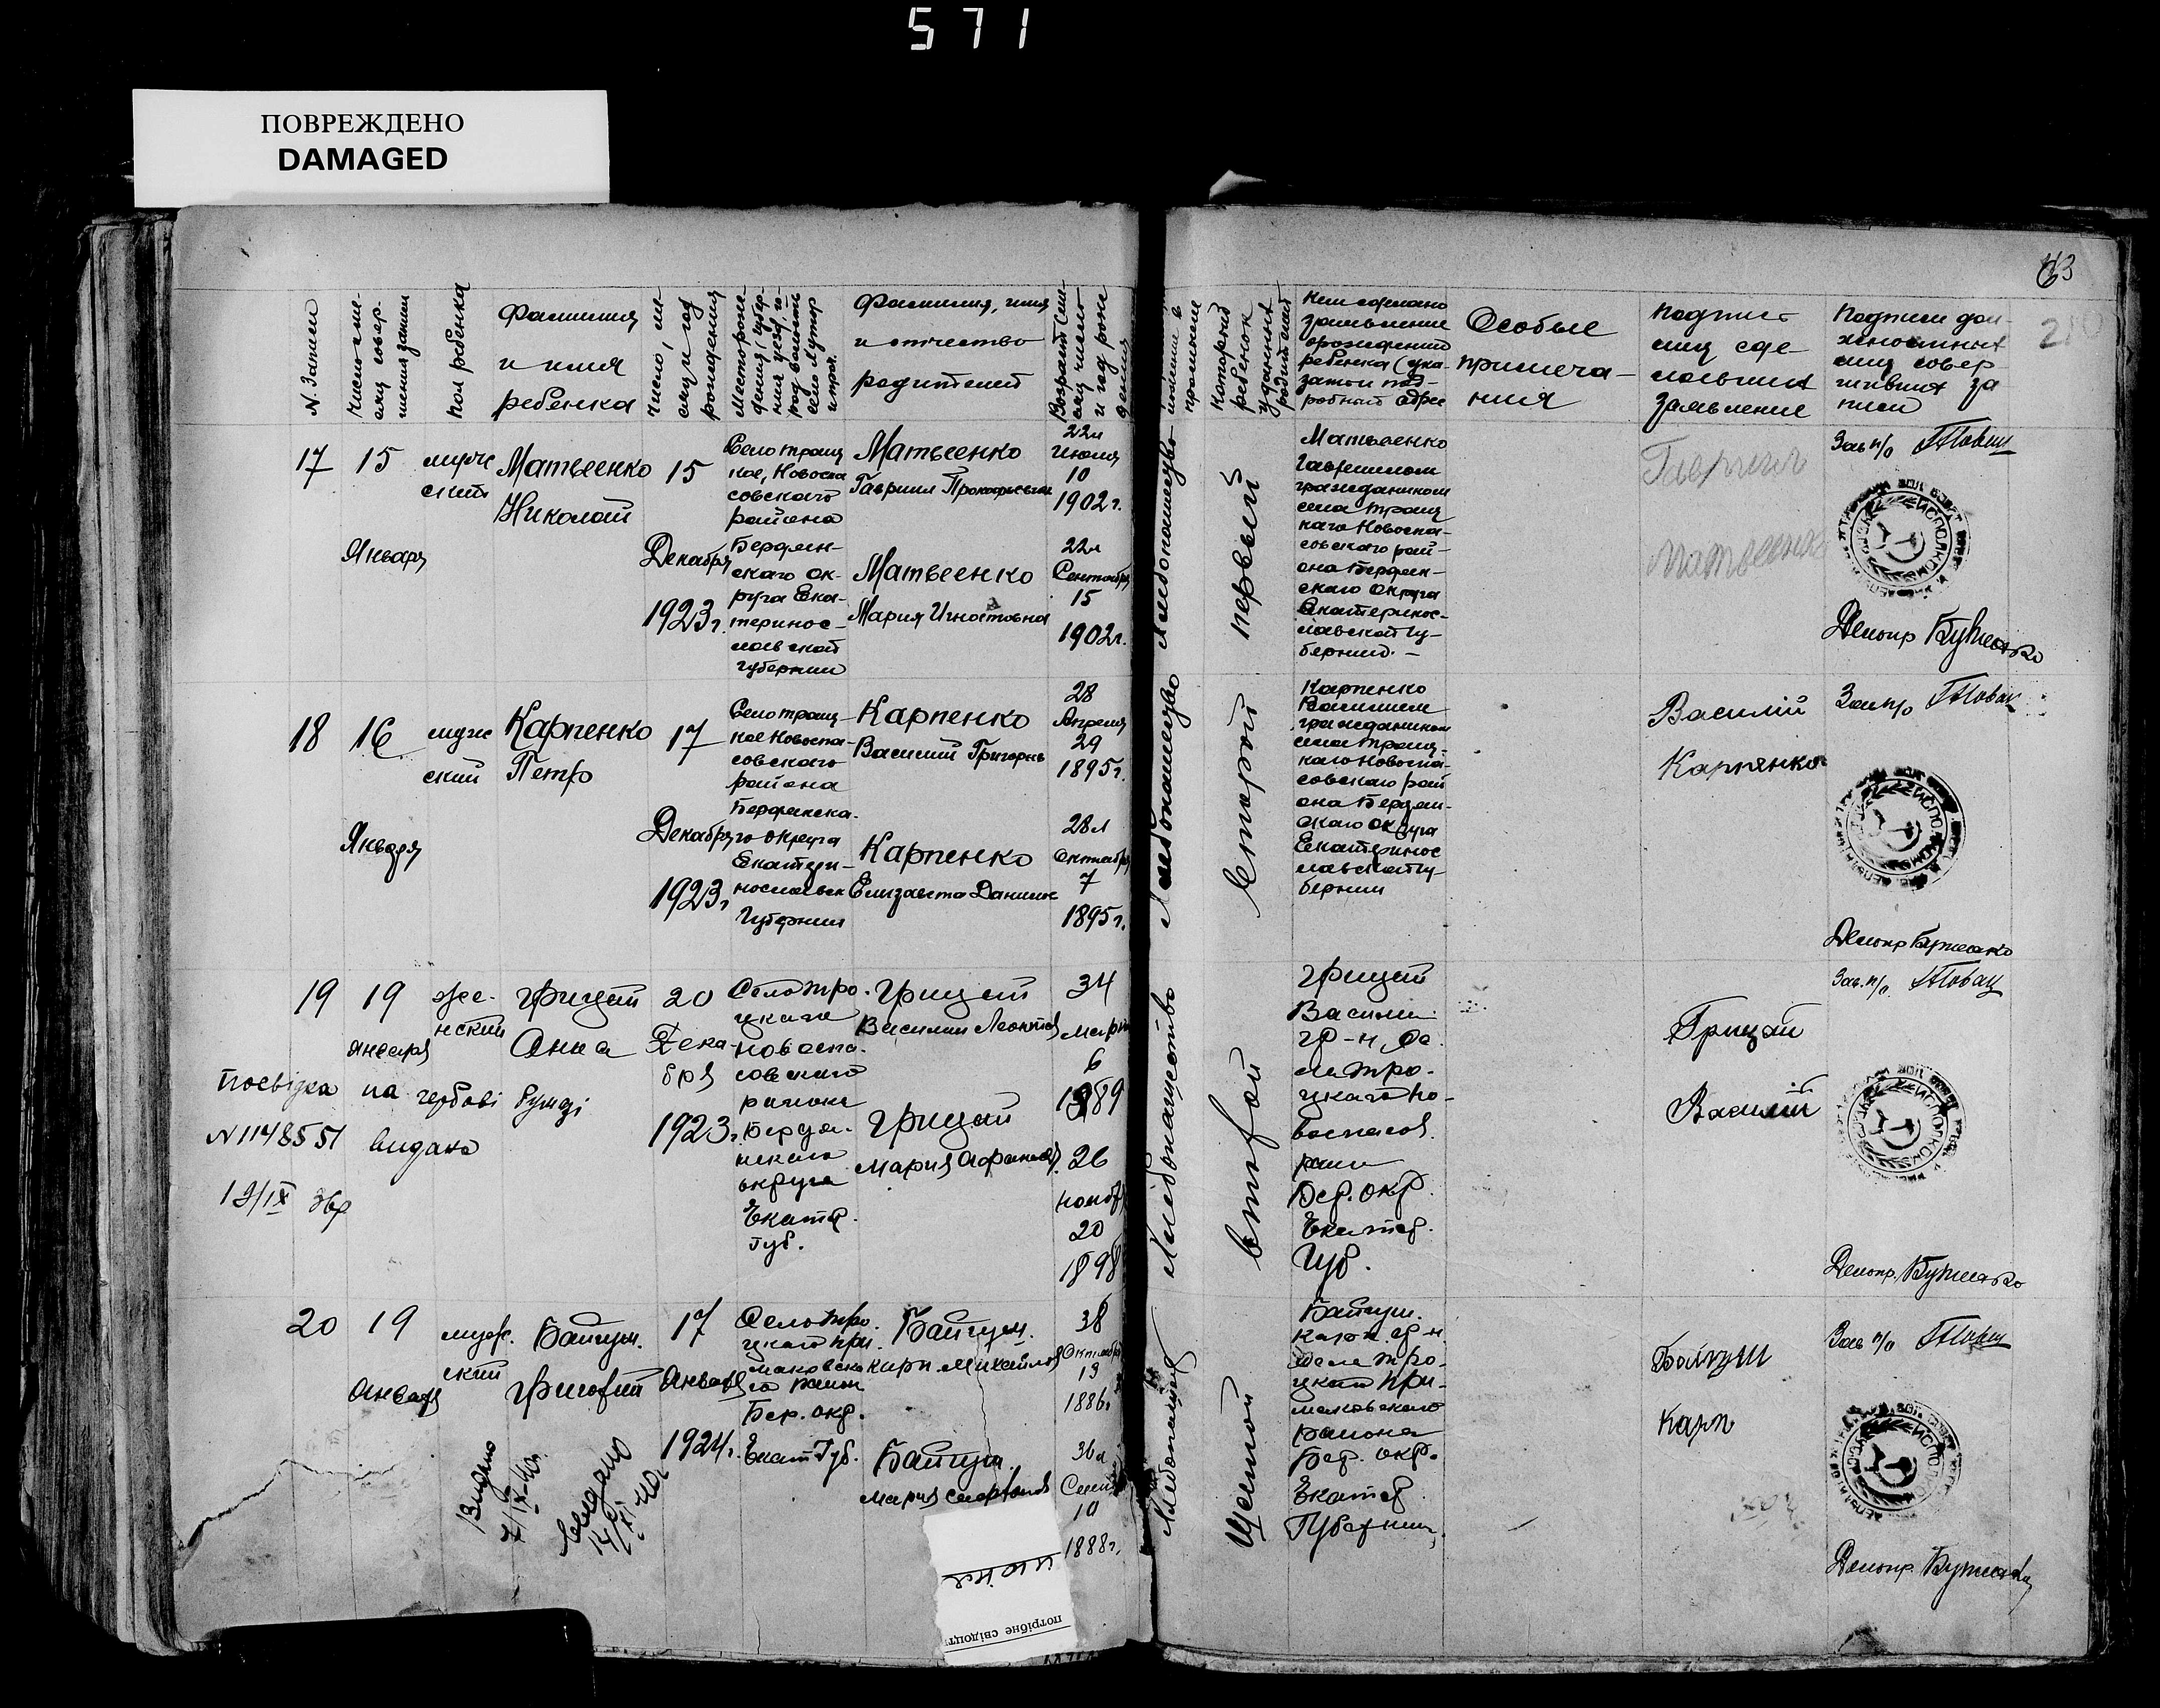 571
ПОВРЕЖДЕНО
DAMAGED
63
N. Записи
Число ме-
сяц совер-
шения записи
Пол ребенка
Фамилия
и имя
ребенка
Число, ме-
сяц и год
рождения
Фамилия, имя
и отчество
родителей
Который
ребенок
у данных
родителей
Кем сделано
заявление
о рождении
ребенка (ука-
зать под-
робный адрес
Особые
примеча-
ния
Подпис
лиц сде-
лавших
заявление
Подписи дол-
жностных
лиц совер-
шивших за
писи
17
15
Января
муже
ский
Матвеенко
Николай
15
Декабря
1923г.
Село Троиц
кое, Новоспа
совского
района
Бердян-
ского ок-
руга Ека-
теринос-
лавской
губернии
Матвеенко
Гавриил Прокофьевич
Матвеенко
Мария Игнатовна
22л
Июля
10
1902г.
22л
Сентября
15
1902г.
Хлебопашество
первый
Матвеенко
Гавриилом
гражданином
села Троиц
каго Новоспа-
совского рай-
она Бердян-
ского Округа
Екатеринос-
лавской гу-
бернии. –
Гавриил
Матвеенко
Зав п/о
Делопр
18
16
Января
муже
ский
Карпенко
Петро
17
Декабря
1923г
Село Троиц-
кое Новоспа-
совского
района
Бердянска-
го округа
Екатери-
нославск
Губернии
Карпенко
Василий Григорьев
Карпенко
Елизавета Данилов
28
Апреля
29
1895г.
28л
Октября
7
1895г.
Хлебопашество
второй
Карпенко
Василием
гражданином
села Троиц-
каго Новоспа-
совского рай
она Бердян-
ского округа
Екатеринос
лавской гу
бернии
Василий
Карпенко
Зав п/о
Делопр
19
19
Января
жен-
нский
Грицай
Анна
20
Дека-
бря
1923г.
Село Тро-
цкаго
Новоспа-
совского
района
Бердя-
нского
округа
Екатер.
Губ.
Грицай
Василий Леонтов
Грицай
Мария Афанасов.
34
Марта
6
1889
26
ноября
20
1898
Хлебопашество
второй
Грицай
Василий
гр-н, Се-
ла Тро-
цкаго Но-
воспасов.
район
Бер. окр.
Екатер.
Губ.
Грицай
Василий
Зав. п/о.
Делопр.
Посвідка на гербові бумзі
N 1148551 видано
12/IX
20
19
Января
мужс.
ский
Байгуш.
Григорий
17
Января
1924г.
Село Тро.
цкаго При.
мановско
го район
Бер. окр.
Екат Губ.
Байгуш.
Карп Михайлов
Байгуш.
Мария
38
Октября
13
1886г
36л
Сент
10
1888г.
Хлебопашец
Шестой
Байгуш.
Карп гр-н.
Села Тро-
цкаго При-
мановского
Района
Бер. окр.
Екатер.
Губернии,
Байгуш
Карп
Зав п/о
Делопр.
Видано
7/IX-40г.
Видано
14/XI 40г
потрібне свідоцт